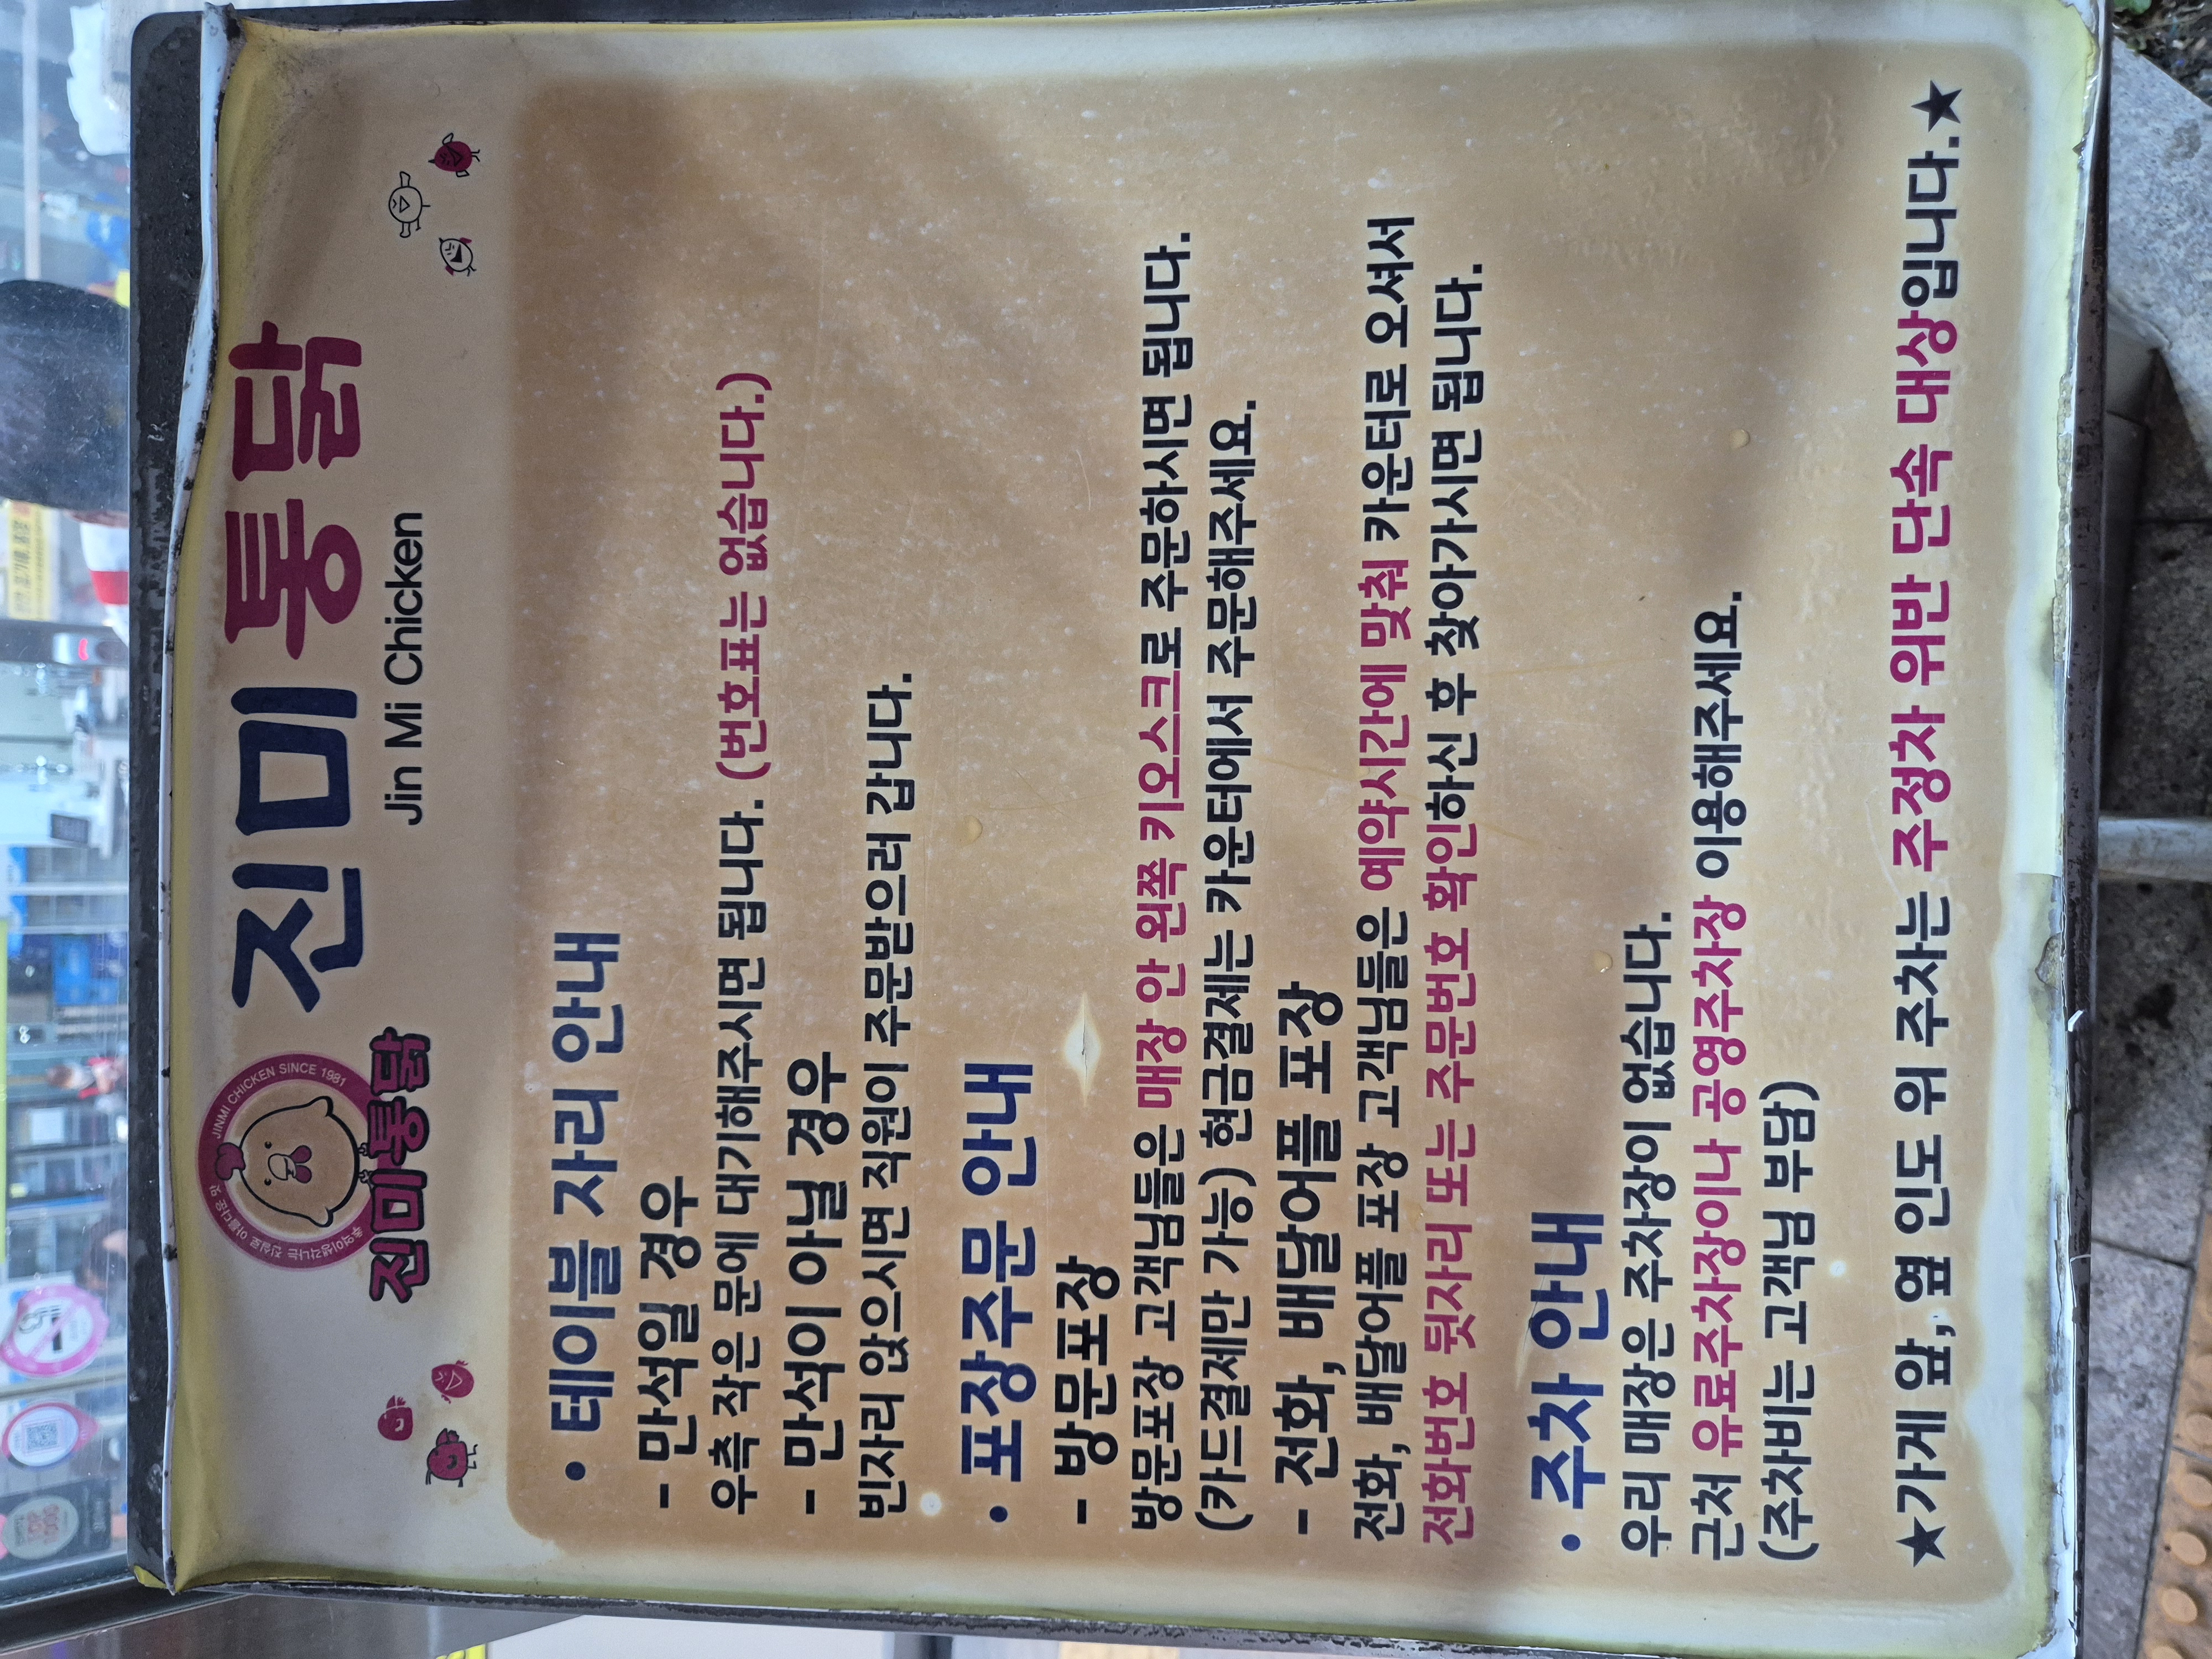 진미통닭
Jin Mi Chicken
JINMI CHICKEN SINCE 1981
추억이 생각나는 진실로 아름다운 맛
진미통닭
• 테이블 자리 안내
- 만석일 경우
우측 작은 문에 대기해주시면 됩니다. (번호표는 없습니다.)
- 만석이 아닐 경우
빈자리 앉으시면 직원이 주문받으러 갑니다.
• 포장주문 안내
- 방문포장
방문포장 고객님들은 매장 안 왼쪽 키오스크로 주문하시면 됩니다.
(카드결제만 가능) 현금결제는 카운터에서 주문해주세요.
- 전화, 배달어플 포장
전화, 배달어플 포장 고객님들은 예약시간에 맞춰 카운터로 오셔서
전화번호 뒷자리 또는 주문번호 확인하신 후 찾아가시면 됩니다.
• 주차 안내
우리 매장은 주차장이 없습니다.
근처 유료주차장이나 공영주차장 이용해주세요.
(주차비는 고객님 부담)
★가게 앞, 옆 인도 위 주차는 주정차 위반 단속 대상입니다.★